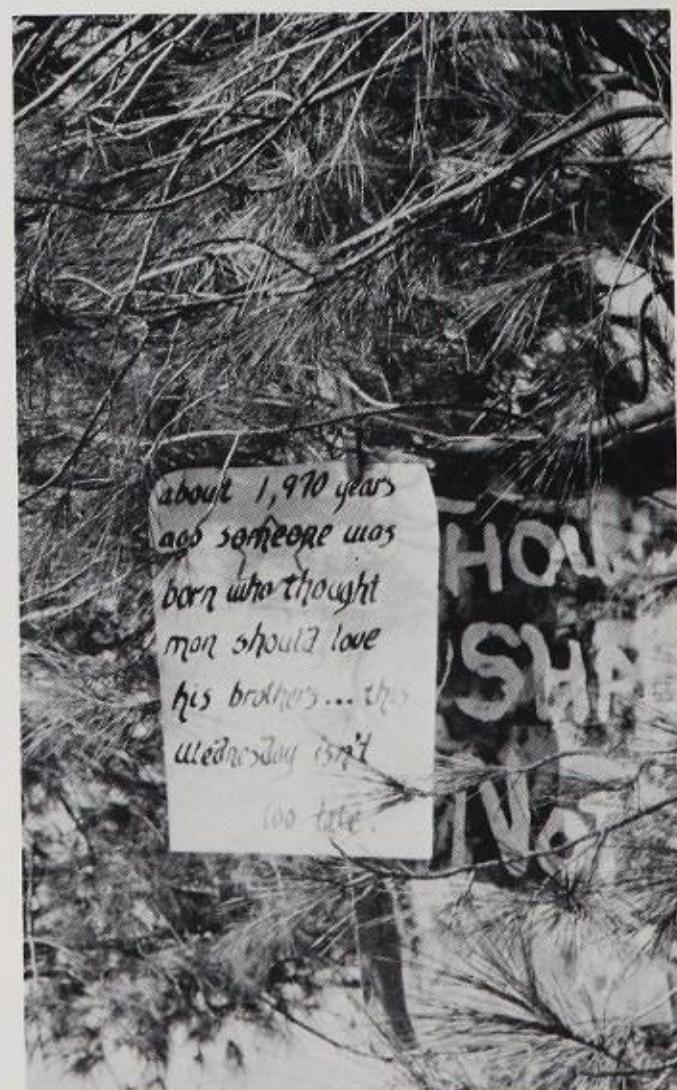 about 1,970 years
ago someone was
born who thought
man should love
his brothers... this
Wednesday isn't
too late.
HOU
SHA
NO